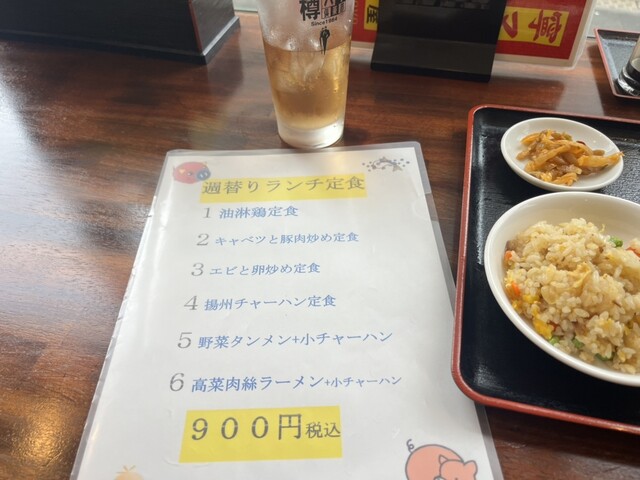 樽
Since1998
週替りランチ定食
1 油淋鶏定食
2 キャベツと豚肉炒め定食
3 エビと卵炒め定食
4 揚州チャーハン定食
5 野菜タンメン+小チャーハン
6 高菜肉絲ラーメン+小チャーハン
900円税込